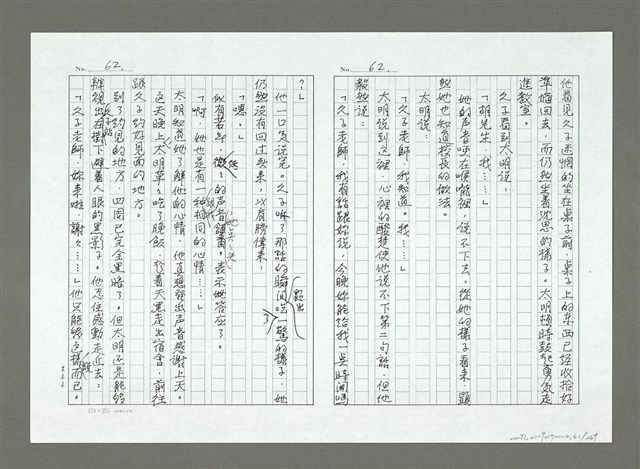 No. 62.
他看見久子迷惘的坐在桌子前，桌子上的东西已經收拾好
準備回去，而仍然坐着沈思的樣子。太明頓時鼓起勇氣走
進教室。
久子看到太明說：
「胡先生，我……」
她的声音哽在喉嚨裡，說不下去。從她的樣子看來，顯
然她也知道校長的做法。
太明說：
「久子老師，我知道。我……」
太明說到這裡，心裡的酸楚使他說不下第二句話，但他
毅然說：
「久子老師，我有話跟妳說，今晚妳能給我一点時間嗎
No. 62.
？」
他一口気說完。久子嚇了那話的瞬間吃一驚的樣子，她
露出
了
仍然沒有回过头來，以肩膀傳來：
「嗯。」
似有若無，微微的声音，表示她答应了。
她点点头
「啊，她也是有一种相同的心情……」
太明知道她了解他的心情，他直想発出声音感謝上天。
這天晚上太明草草吃了晚飯，趁着天黑走出宿舍，前往
跟久子約好見面的地方。
到了約見的地方，四周已完全黑暗了。但太明还是能夠
辨視出在樹下避着人眼的黑影子。他忍住感動走近去：
「久子老師，妳來啦，謝々……」他只能够這樣而已。
(24×25)